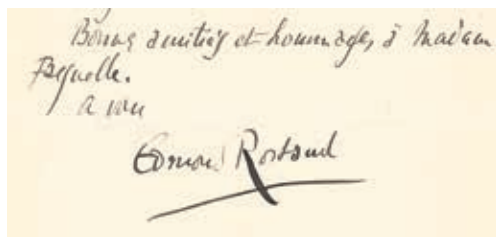 Bonnes amitiés et hommages à Madam
A vous
Edmond Rostand